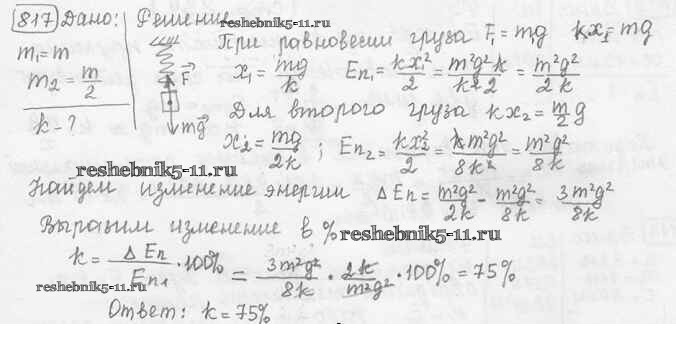 817 Дано: Решение
reshebnik5-11.ru
m₁=m
m₂=m/2
k-?
F
mg
При равновесии груза F₁=mg kx₁=mg
x₁=mg/k Eп₁=kx₁²/2=m²g²k/k²2=m²g²/2k
Для второго груза kx₂=m/2 g
x₂=mg/2k; Eп₂=kx₂²/2=km²g²/8k²=m²g²/8k
reshebnik5-11.ru
Найдем изменение энергии ΔEп=m²g²/2k-m²g²/8k=3m²g²/8k
Выразим изменение в %
reshebnik5-11.ru
k=ΔEп/Eп₁·100%=3m²g²/8k·2k/m²g²·100%=75%
reshebnik5-11.ru
Ответ: k=75%